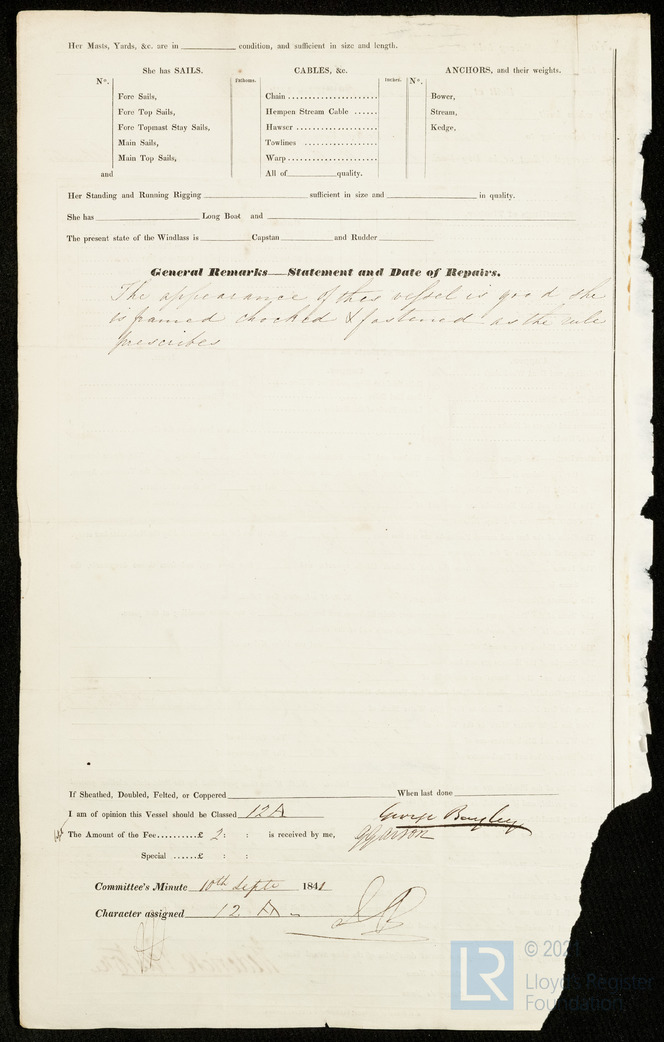 Her Masts, Yards, &c. are in ________ condition, and sufficient in size and length.
She has SAILS.
CABLES, &c.
ANCHORS, and their weights.
N°.
Fathoms.
Inches.
N°.
Fore Sails,
Chain
Bower,
Fore Top Sails,
Hempen Stream Cable
Stream,
Fore Topmast Stay Sails,
Hawser
Kedge,
Main Sails,
Towlines
Main Top Sails,
Warp
and
All of ________ quality.
Her Standing and Running Rigging ________ sufficient in size and ________ in quality.
She has ________ Long Boat and ________
The present state of the Windlass is ________ Capstan ________ and Rudder ________
General Remarks—Statement and Date of Repairs.
The appearance of this vessel is good she
is framed chocked & fastened as the rule
prescribes
If Sheathed, Doubled, Felted, or Coppered ________ When last done ________
I am of opinion this Vessel should be Classed 12 A George Bayley
The Amount of the Fee.........£ 2: : is received by me,
Special ......£ : :
Committee's Minute 10th Septr 1841
Character assigned 12 A
LR
© 2021
Lloyd's Register
Foundation